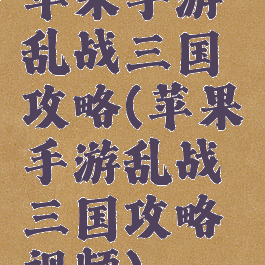 苹果手游
乱战三国
攻略(苹果
手游乱战
三国攻略
视频)